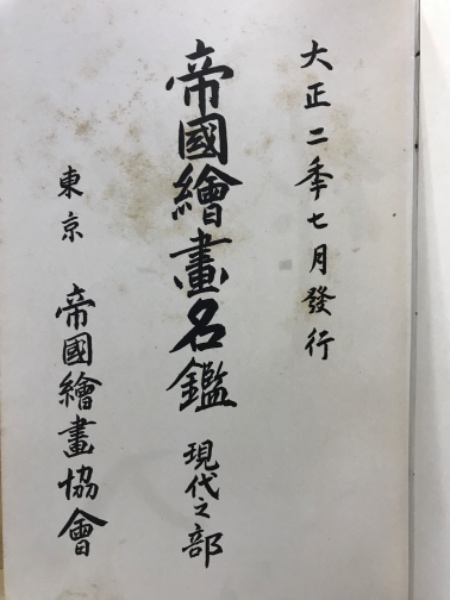 大正二季七月發行
帝國繪畫名鑑 現代之部
東京 帝國繪畫協會